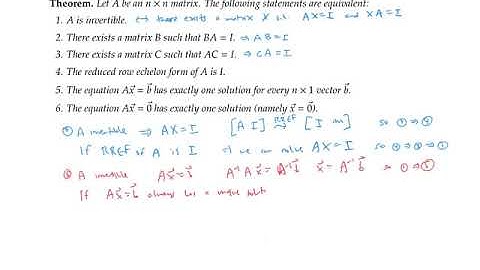 Theorem. Let A be an n × n matrix. The following statements are equivalent:
1. A is invertible. ↔ there exists a matrix X s.t. AX=I and XA=I
2. There exists a matrix B such that BA = I. ⇒ AB=I
3. There exists a matrix C such that AC = I. ⇒ CA=I
4. The reduced row echelon form of A is I.
5. The equation Ax⃗ = b⃗ has exactly one solution for every n × 1 vector b⃗.
6. The equation Ax⃗ = 0⃗ has exactly one solution (namely x⃗ = 0⃗).
④ A invertible ⇒ AX=I [A I] RREF→ [I] so ①⇒④
If RREF of A is I we can solve AX=I so ④⇒③⇒①
⑤ A invertible Ax⃗=b⃗ A⁻¹Ax⃗=A⁻¹b⃗ x⃗=A⁻¹b⃗ so ①⇒⑤
If Ax⃗=b⃗ always has a unique